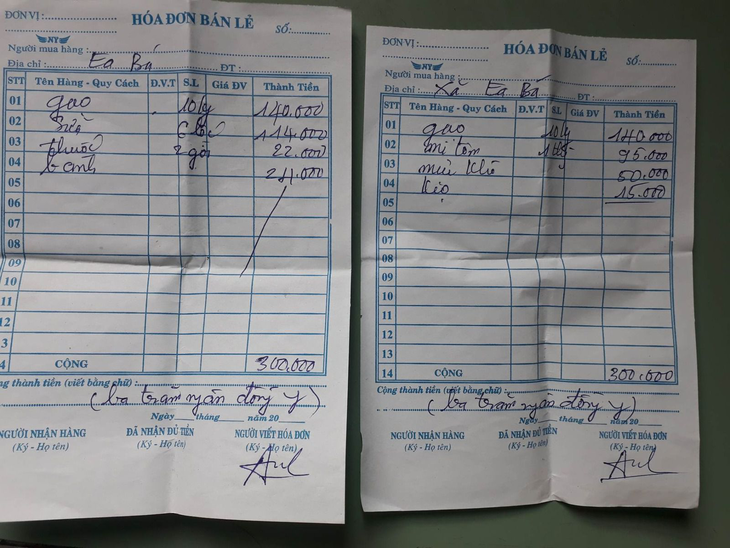 ĐƠN VỊ :
HÓA ĐƠN BÁN LẺ
SỐ:
NY
Người mua hàng : Ea Bá
Địa chỉ : ĐT :
STT Tên Hàng - Quy Cách Đ.V.T S.L Giá ĐV Thành Tiền
01 gạo 10ky 140.000
02 Sữa 6 114.000
03 thuốc 2 gói 22.000
04 b canh
05
06
07
08
09
10
11
12
13
4 CỘNG 300.000
ng thành tiền (viết bằng chữ) :
(ba trăm ngàn đồng y)
Ngày tháng năm 20
NGƯỜI NHẬN HÀNG ĐÃ NHẬN ĐỦ TIỀN NGƯỜI VIẾT HÓA ĐƠN
(Ký - Họ tên) (Ký - Họ tên) (Ký - Họ tên)
ĐƠN VỊ :
HÓA ĐƠN BÁN LẺ
SỐ:
NY
Người mua hàng :
Địa chỉ : Xã Ea Bá ĐT :
STT Tên Hàng - Quy Cách Đ.V.T S.L Giá ĐV Thành Tiền
01 gạo 10ky 140.000
02 mì tôm 1 95.000
03 mùi khô 50.000
04 Kẹo 15.000
05
06
07
08
09
10
11
12
13
14 CỘNG 300.000
Cộng thành tiền (viết bằng chữ) :
(ba trăm ngàn đồng y)
Ngày tháng năm 20
NGƯỜI NHẬN HÀNG ĐÃ NHẬN ĐỦ TIỀN NGƯỜI VIẾT HÓA ĐƠN
(Ký - Họ tên) (Ký - Họ tên) (Ký - Họ tên)